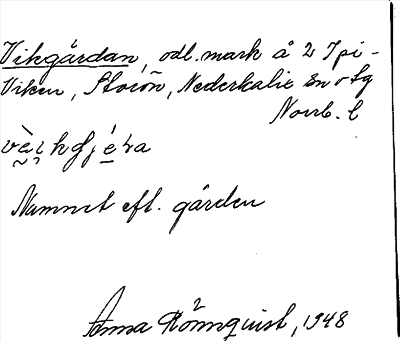 Vikgårdan, odl. mark å 2 Ipi-
Viken, Storön, Nederkalix sn o tg
Norrb. l
Namnet eft. gården
Anna Rönnquist, 1948